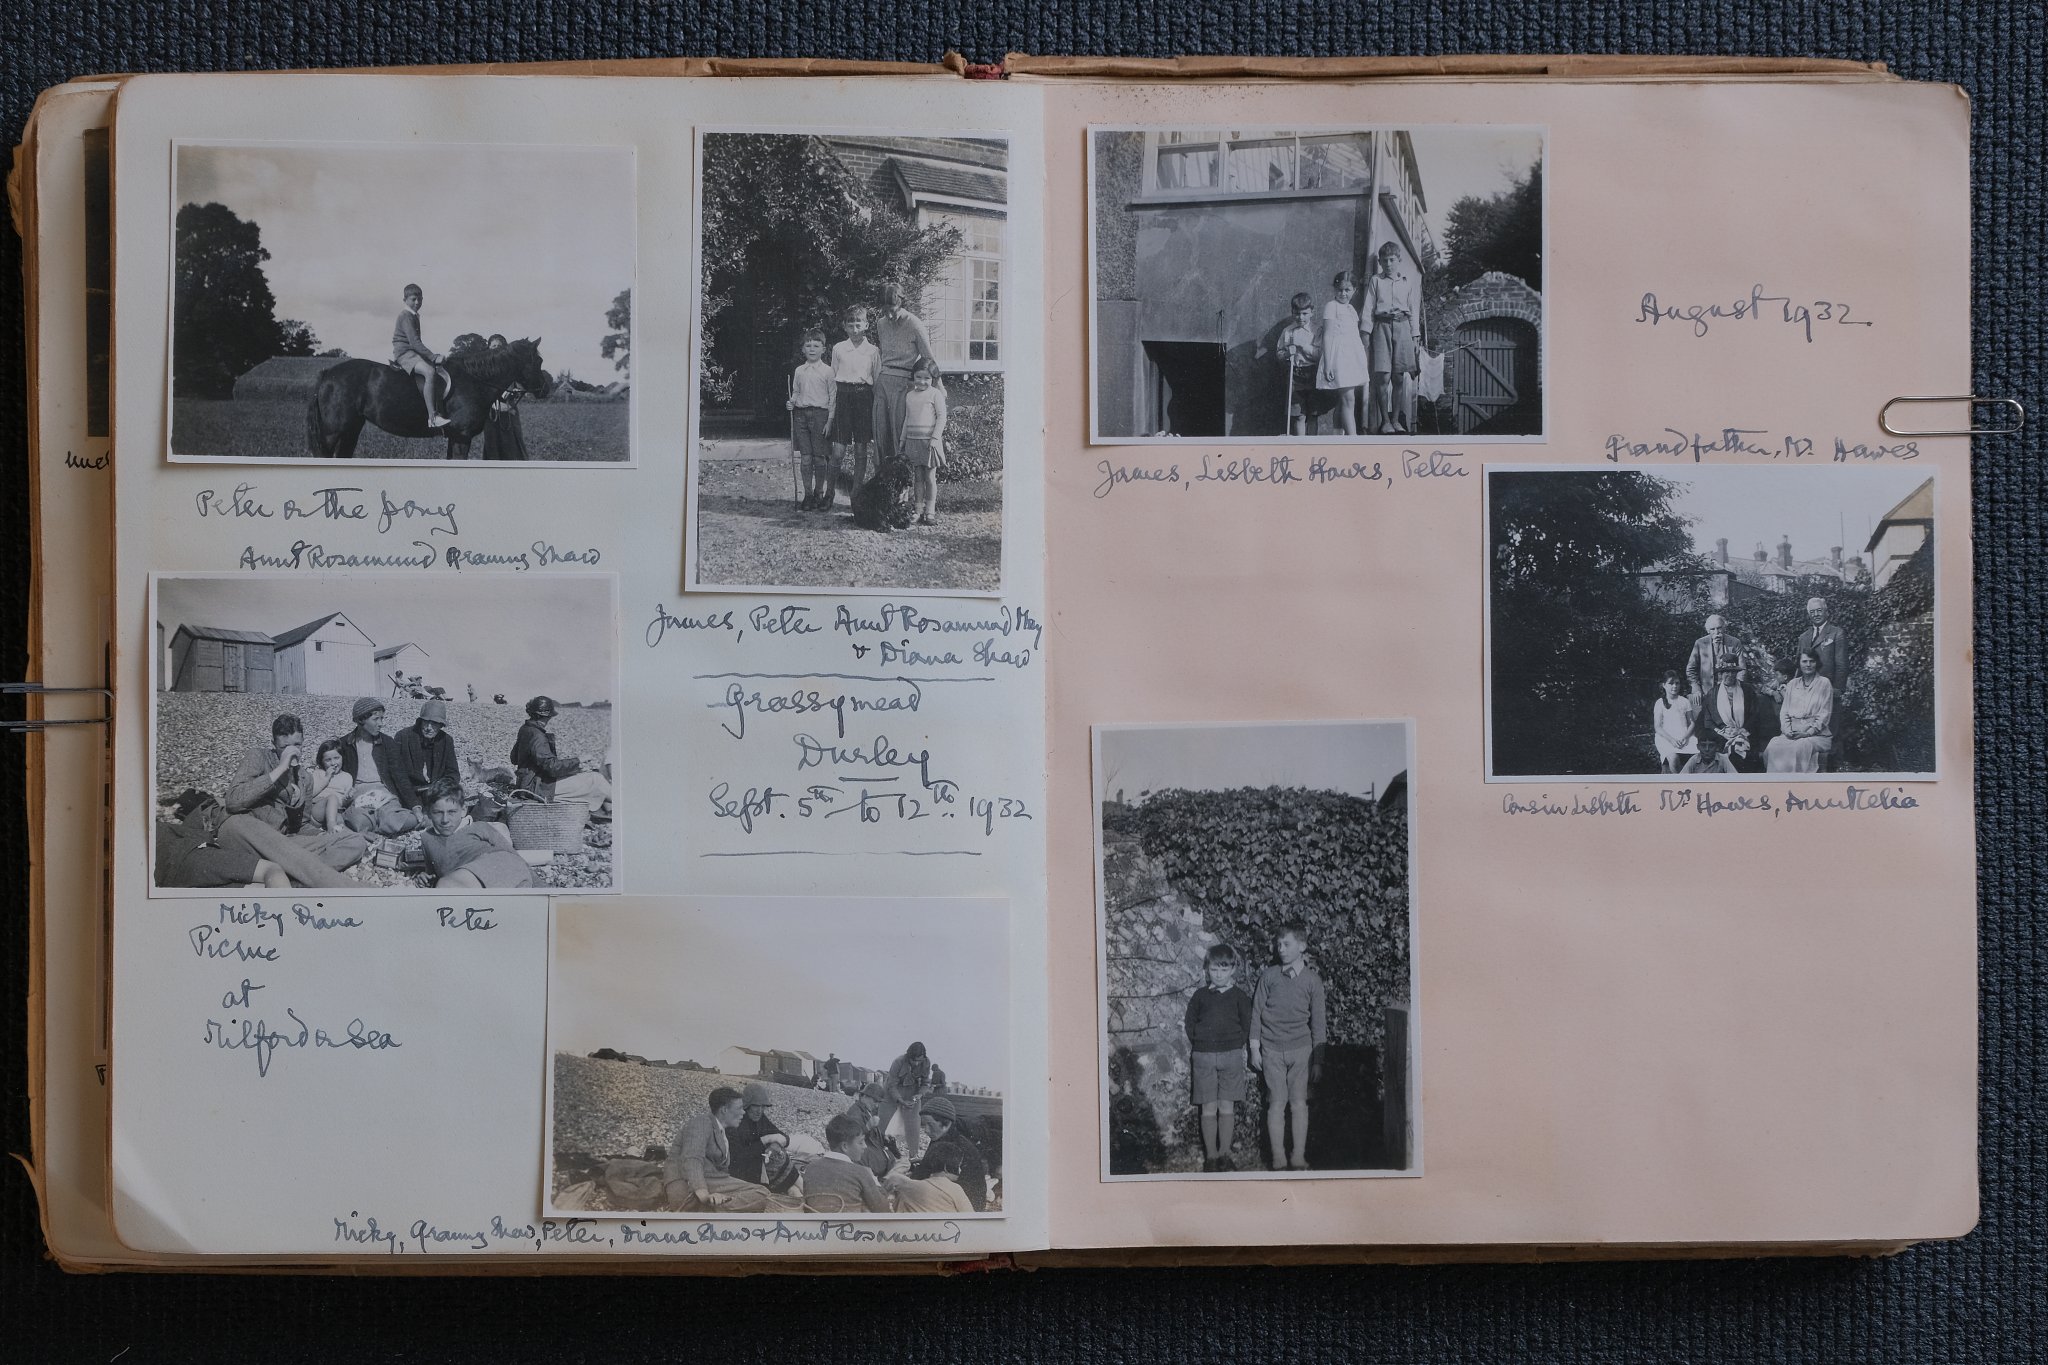 Peter on the pony
Aunt Rosamund Granny Shaw
Micky Diana Peter
Picnic
at
Milford on Sea
James, Peter Aunt Rosamund May
& Diana Shaw
Grassymead
Durley
Sept. 5th to 12th. 1932
Micky, Granny Shaw, Peter, Diana Shaw & Aunt Rosamund
August 1932.
James, Lisbeth Hawes, Peter
Grandfather, Mr Hawes
Cousin Lisbeth Mrs Hawes, Aunt Relia